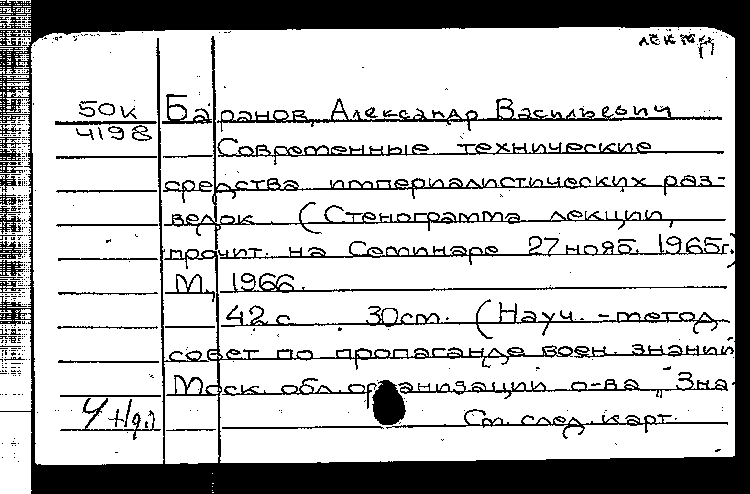 50к Баранов, Александр Васильевич
4198
Современные технические
средства империалистических раз-
ведок. (Стенограмма лекции,
прочит. на Семинаре 27 нояб. 1965г.)
М., 1966.
42 с. 30см. (Науч.-метод.
совет по пропаганде воен. знаний
Моск. обл. организации о-ва „Зна-
См. след. карт.